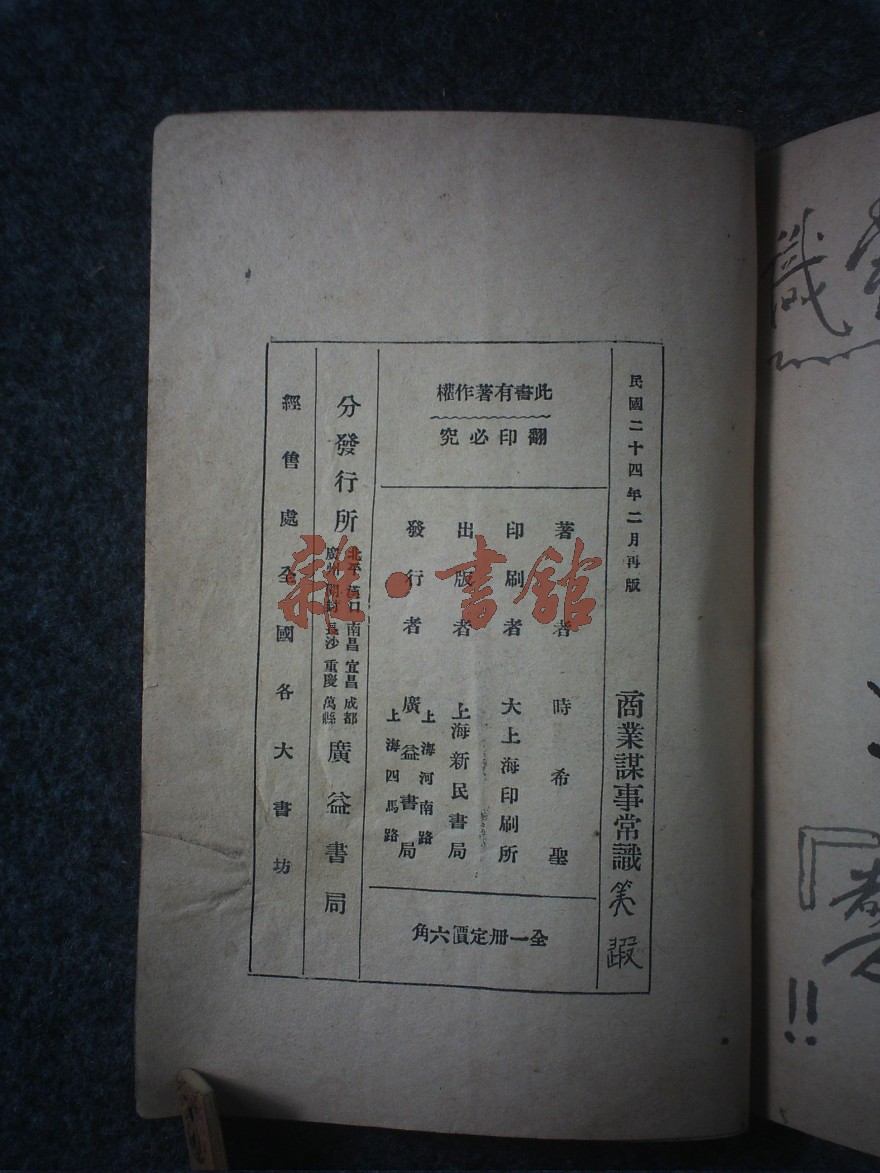 民國二十四年二月再版
商業謀事常識
此書有著作權
翻印必究
著作者 時希聖
印刷者 大上海印刷所
出版者 上海新民書局
發行者 廣益書局
上海河南路
上海四馬路
全一册定價六角
分發行所
北平 漢口 南昌 宜昌 成都
廣州 開封 長沙 重慶 萬縣
廣益書局
經售處全國各大書坊
雜·書館
識
!!